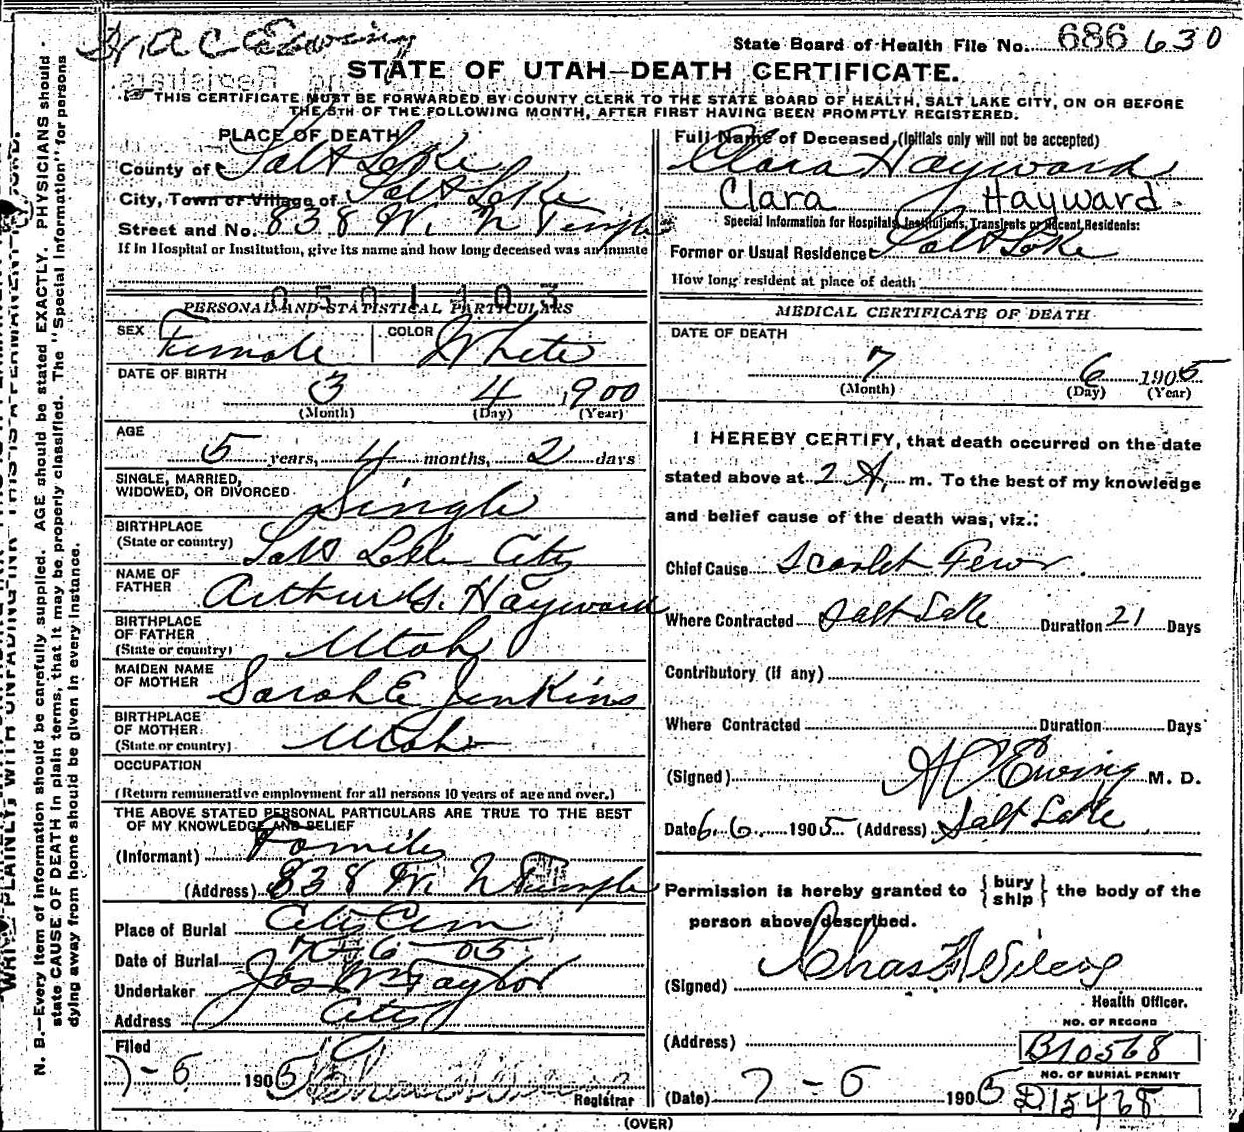 H. A C Ewing
State Board of Health File No. 686 630
STATE OF UTAH—DEATH CERTIFICATE.
THIS CERTIFICATE MUST BE FORWARDED BY COUNTY CLERK TO THE STATE BOARD OF HEALTH, SALT LAKE CITY, ON OR BEFORE
THE 5TH OF THE FOLLOWING MONTH, AFTER FIRST HAVING BEEN PROMPTLY REGISTERED.
PLACE OF DEATH
County of Salt Lake
City, Town or Village of Salt Lake
Street and No. 838 W. N Temple
If in Hospital or Institution, give its name and how long deceased was an inmate
0501403
PERSONAL AND STATISTICAL PARTICULARS
SEX Female COLOR White
DATE OF BIRTH
3 4 1900
(Month) (Day) (Year)
AGE
5 years, 4 months, 2 days
SINGLE, MARRIED,
WIDOWED, OR DIVORCED Single
BIRTHPLACE
(State or country) Salt Lake City
NAME OF
FATHER Arthur G. Hayward
BIRTHPLACE
OF FATHER
(State or country) Utah
MAIDEN NAME
OF MOTHER Sarah E Jenkins
BIRTHPLACE
OF MOTHER
(State or country) Utah
OCCUPATION
(Return remunerative employment for all persons 10 years of age and over.)
THE ABOVE STATED PERSONAL PARTICULARS ARE TRUE TO THE BEST
OF MY KNOWLEDGE AND BELIEF
(Informant) Family
(Address) 838 W. N Temple
Place of Burial City Cem
Date of Burial 7-6-05
Undertaker Jos Wm Taylor
Address City
Filed
7-6 1905
Registrar
Full Name of Deceased (Initials only will not be accepted)
Clara Hayward
Clara Hayward
Special Information for Hospitals, Institutions, Transients or Recent Residents:
Former or Usual Residence Salt Lake
How long resident at place of death
MEDICAL CERTIFICATE OF DEATH
DATE OF DEATH
7 6 1905
(Month) (Day) (Year)
I HEREBY CERTIFY, that death occurred on the date
stated above at 2 A. m. To the best of my knowledge
and belief cause of the death was, viz.:
Chief Cause Scarlet Fever
Where Contracted Salt Lake Duration 21 Days
Contributory (if any)
Where Contracted Duration Days
(Signed) A C Ewing M. D.
Date 6.6. 1905 (Address) Salt Lake
Permission is hereby granted to { bury ship } the body of the
person above described.
(Signed) Chas
Health Officer.
(Address)
NO. OF RECORD
B10568
NO. OF BURIAL PERMIT
(Date) 7-6 1905 D15468
(OVER)
N. B.—Every item of information should be carefully supplied. AGE should be stated EXACTLY. PHYSICIANS should
state CAUSE OF DEATH in plain terms, that it may be properly classified. The "Special Information" for persons
dying away from home should be given in every instance.
WRITE PLAINLY, WITH UNFADING INK—THIS IS A PERMANENT